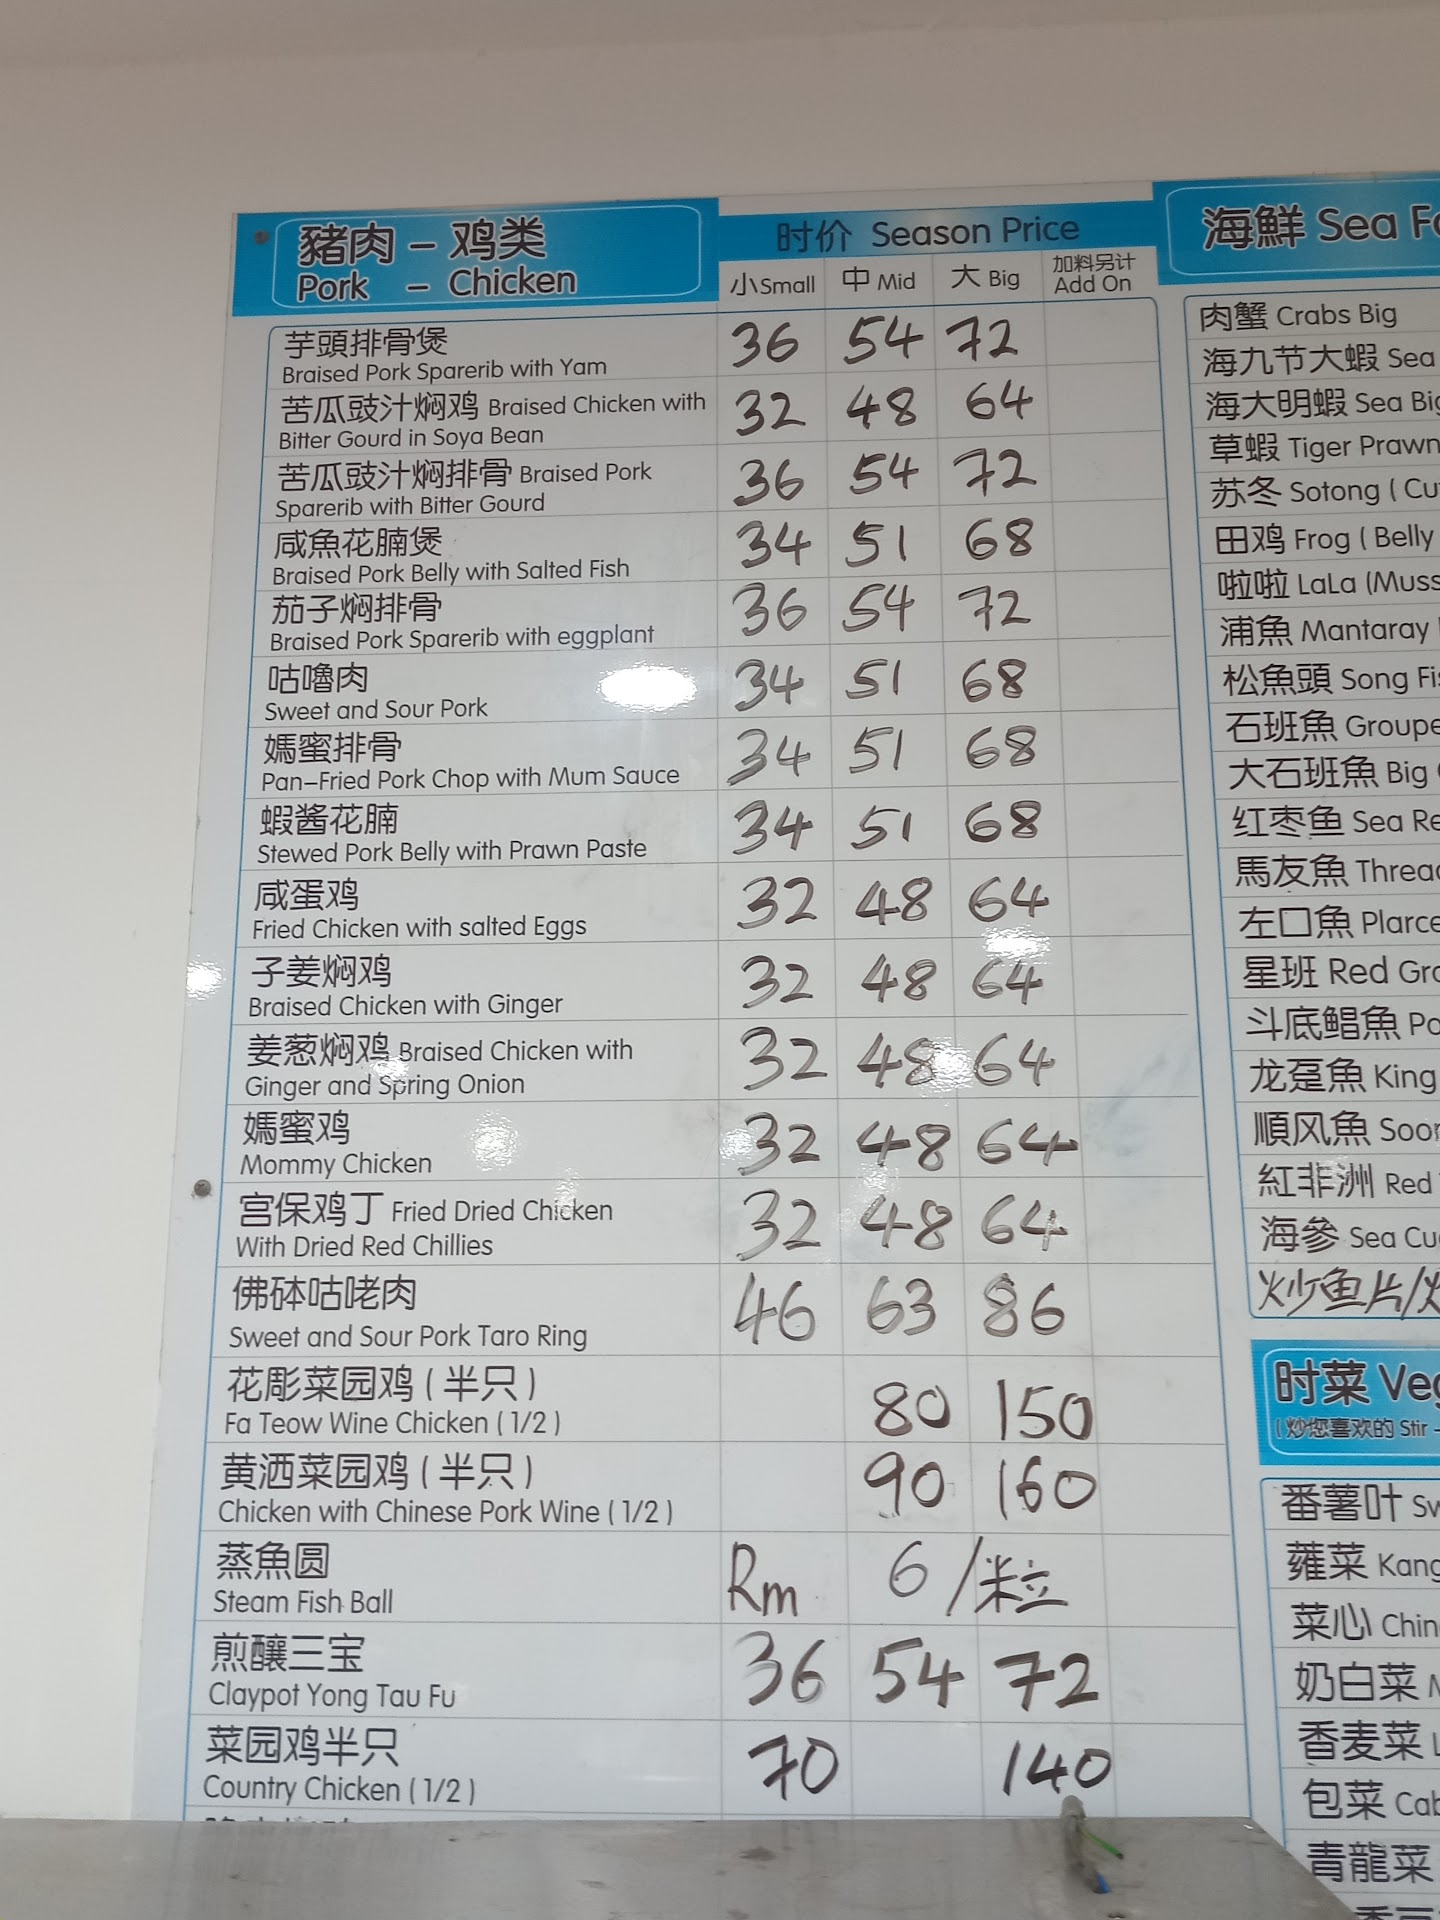 豬肉 – 鸡类
Pork – Chicken
时价 Season Price
小 Small 中 Mid 大 Big 加料另计 Add On
芋頭排骨煲
Braised Pork Sparerib with Yam
36 54 72
苦瓜豉汁焖鸡 Braised Chicken with
Bitter Gourd in Soya Bean
32 48 64
苦瓜豉汁焖排骨 Braised Pork
Sparerib with Bitter Gourd
36 54 72
咸魚花腩煲
Braised Pork Belly with Salted Fish
34 51 68
茄子焖排骨
Braised Pork Sparerib with eggplant
36 54 72
咕嚕肉
Sweet and Sour Pork
34 51 68
媽蜜排骨
Pan–Fried Pork Chop with Mum Sauce
34 51 68
蝦酱花腩
Stewed Pork Belly with Prawn Paste
34 51 68
咸蛋鸡
Fried Chicken with salted Eggs
32 48 64
子姜焖鸡
Braised Chicken with Ginger
32 48 64
姜葱焖鸡 Braised Chicken with
Ginger and Spring Onion
32 48 64
媽蜜鸡
Mommy Chicken
32 48 64
宫保鸡丁 Fried Dried Chicken
With Dried Red Chillies
32 48 64
佛砵咕咾肉
Sweet and Sour Pork Taro Ring
46 63 86
花彫菜园鸡 ( 半只 )
Fa Teow Wine Chicken ( 1/2 )
80 150
黄洒菜园鸡 ( 半只 )
Chicken with Chinese Pork Wine ( 1/2 )
90 160
蒸魚圆
Steam Fish Ball
Rm 6 /粒
煎釀三宝
Claypot Yong Tau Fu
36 54 72
菜园鸡半只
Country Chicken ( 1/2 )
70 140
海鮮 Sea
肉蟹 Crabs Big
海九节大蝦 Sea
海大明蝦 Sea
草蝦 Tiger Prawn
苏冬 Sotong (
田鸡 Frog ( Belly
啦啦 LaLa
浦魚 Mantaray
松魚頭 Song
石班魚
大石班魚 Big
红枣鱼 Sea
馬友魚
左口魚
星班 Red
斗底鲳魚
龙趸魚 King
順风魚
紅非洲 Red
海參 Sea
炒鱼片/
时菜
( 炒您喜欢的 Stir
番薯叶
蕹菜
菜心
奶白菜
香麦菜
包菜
青龍菜